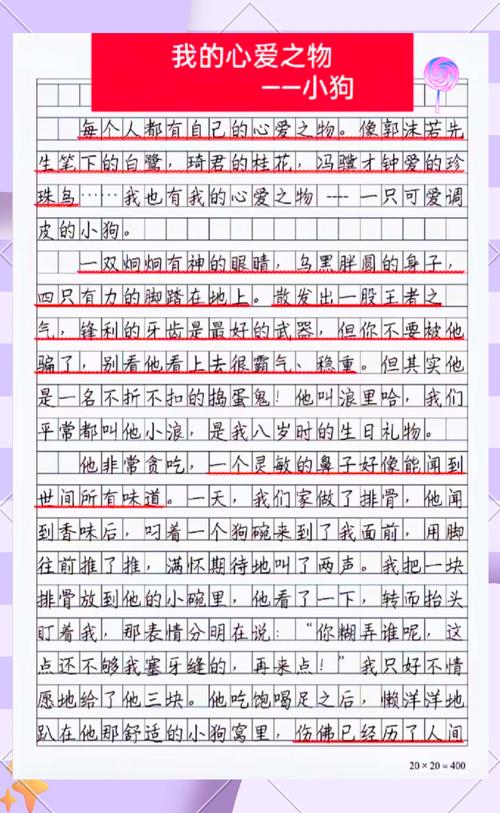 我的心爱之物
——小狗
每个人都有自己的心爱之物。像郭沫若先
生笔下的白鹭，琦君的桂花，冯骥才钟爱的珍
珠鸟……我也有我的心爱之物----一只可爱调
皮的小狗。
一双炯炯有神的眼睛，乌黑胖圆的身子，
四只有力的脚踏在地上。散发出一股王者之
气，锋利的牙齿是最好的武器，但你不要被他
骗了，别看他看上去很霸气、稳重。但其实他
是一名不折不扣的捣蛋鬼！他叫浪里哈，我们
平常都叫他小浪，是我八岁时的生日礼物。
他非常贪吃，一个灵敏的鼻子好像能闻到
世间所有味道。一天，我们家做了排骨，他闻
到香味后，叼着一个狗碗来到了我面前，用脚
往前推了推，满怀期待地叫了两声。我把一块
排骨放到他的小碗里，他看了一下，转而抬头
盯着我，那表情分明在说：“你糊弄谁呢，这
点还不够我塞牙缝的，再来点！”我只好不情
愿地给了他三块。他吃饱喝足之后，懒洋洋地
趴在他那舒适的小狗窝里，伤佛已经历了人间
20×20=400